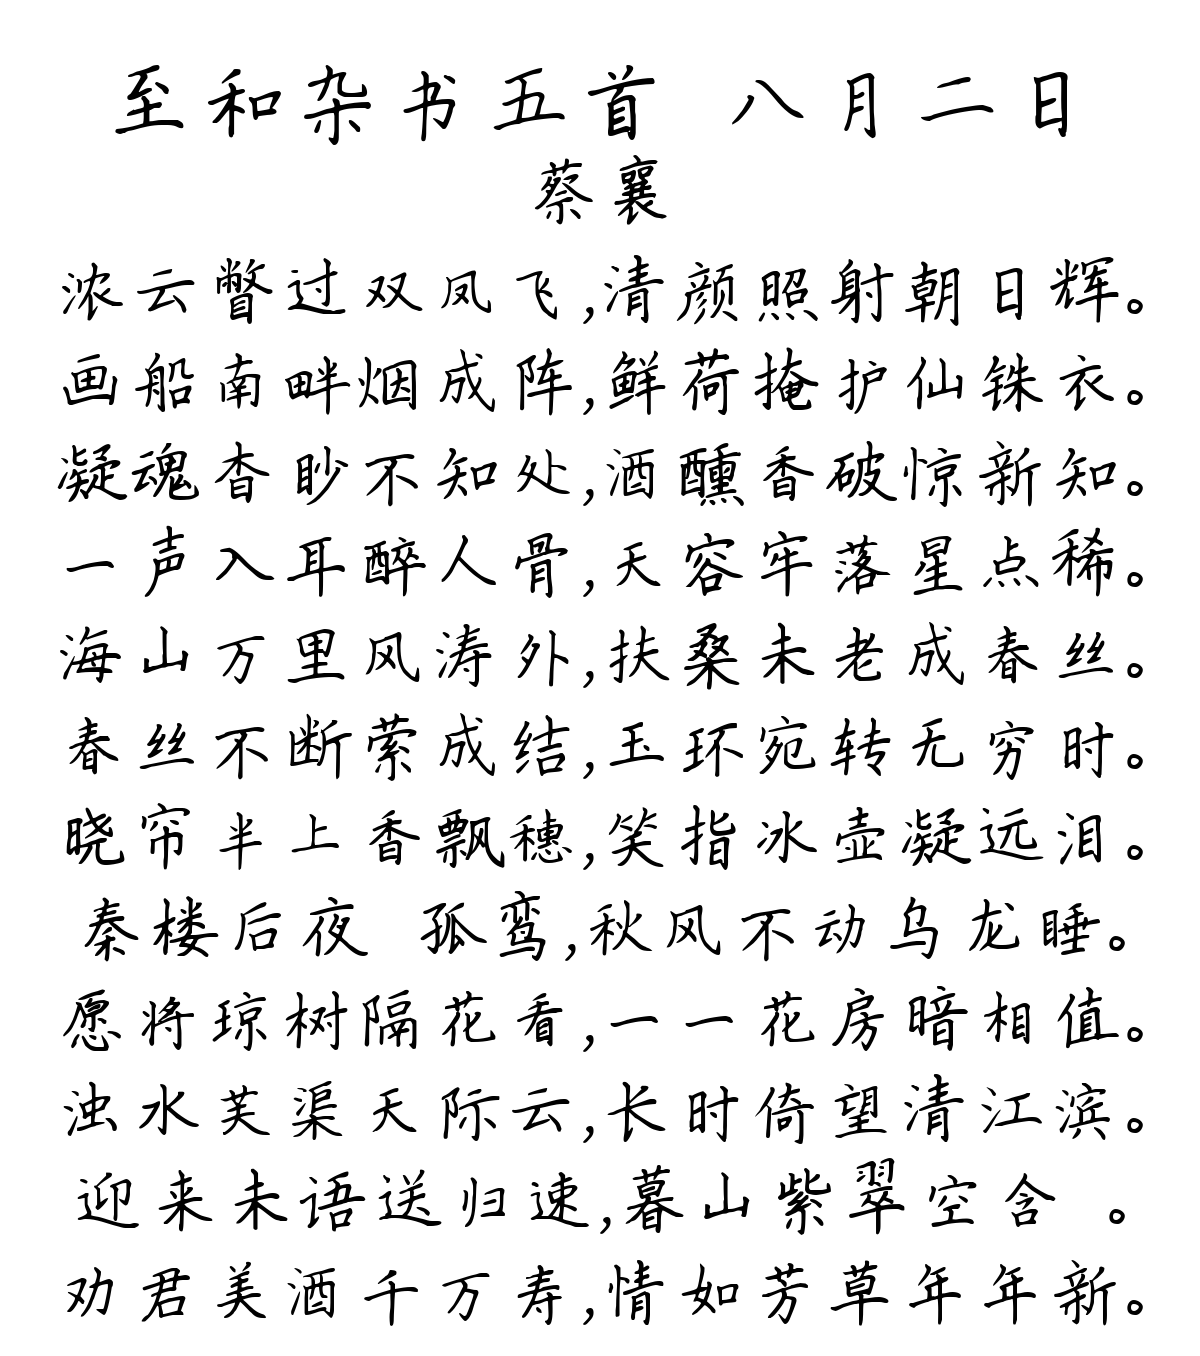 至和杂书五首 八月二日
蔡襄
浓云瞥过双凤飞,清颜照射朝日辉。
画船南畔烟成阵,鲜荷掩护仙铢衣。
凝魂杳眇不知处,酒醺香破惊新知。
一声入耳醉人骨,天容牢落星点稀。
海山万里风涛外,扶桑未老成春丝。
春丝不断萦成结,玉环宛转无穷时。
晓帘半上香飘穗,笑指冰壶凝远泪。
秦楼后夜 孤鸾,秋风不动乌龙睡。
愿将琼树隔花看,一一花房暗相值。
浊水芙渠天际云,长时倚望清江滨。
迎来未语送归速,暮山紫翠空含 。
劝君美酒千万寿,情如芳草年年新。